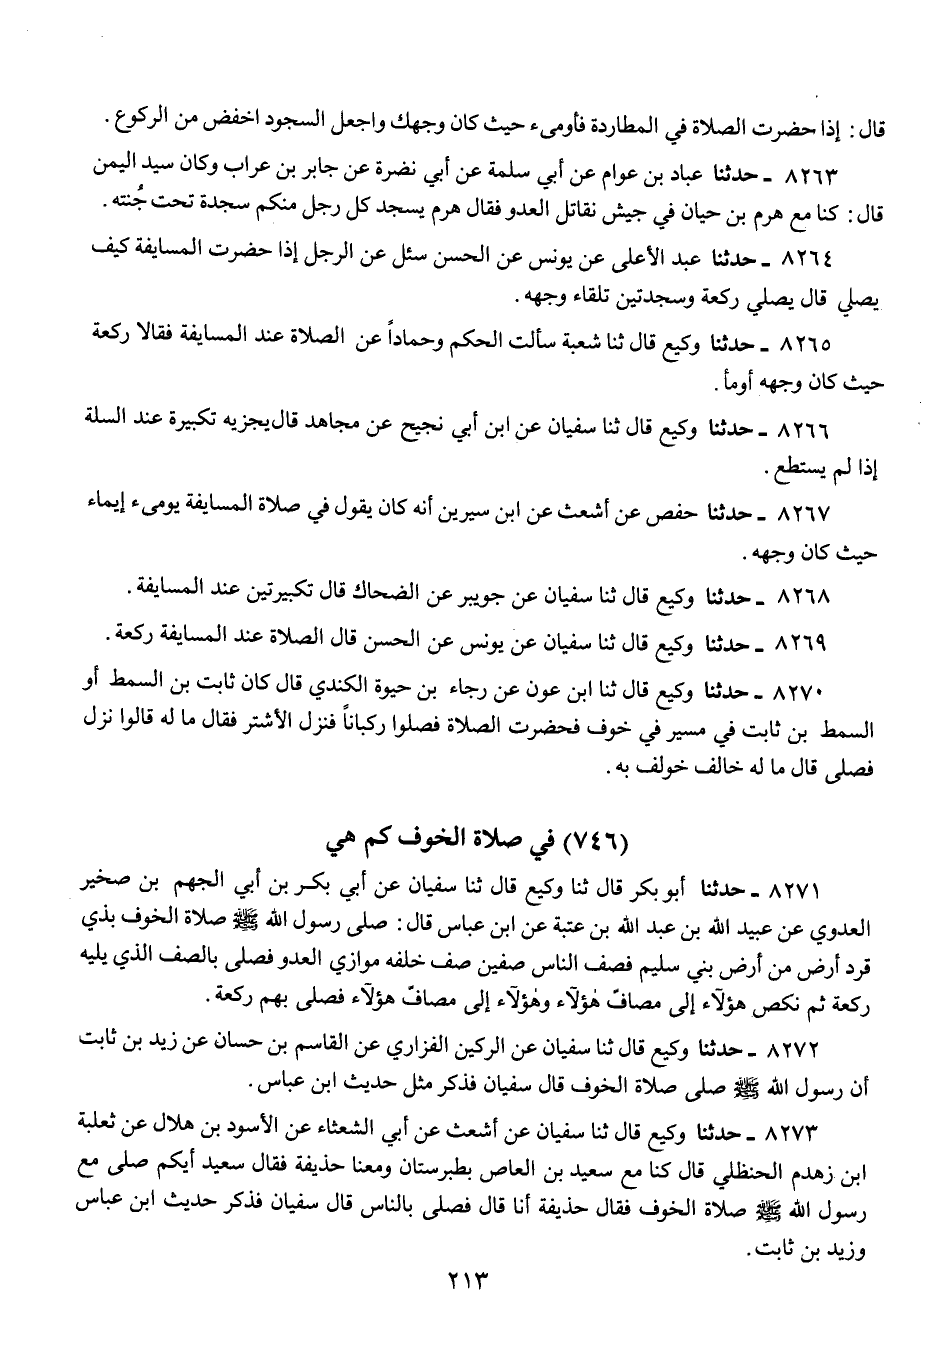 قال : إذا حضرت الصلاة في المطاردة فأومىء حيث كان وجهك واجعل السجود اخفض من الركوع .
٨٢٦٣ ـ حدثنا عباد بن عوام عن أبي سلمة عن أبي نضرة عن جابر بن عراب وكان سيد اليمن
قال : كنا مع هرم بن حيان في جيش نقاتل العدو فقال هرم يسجد كل رجل منكم سجدة تحت جُنته .
٨٢٦٤ ـ حدثنا عبد الأعلى عن يونس عن الحسن سئل عن الرجل إذا حضرت المسايفة كيف
يصلي قال يصلي ركعة وسجدتين تلقاء وجهه .
٨٢٦٥ ـ حدثنا وكيع قال ثنا شعبة سألت الحكم وحماداً عن الصلاة عند المسايفة فقالا ركعة
حيث كان وجهه أومأ .
٨٢٦٦ ـ حدثنا وكيع قال ثنا سفيان عن ابن أبي نجيح عن مجاهد قال يجزيه تكبيرة عند السلة
إذا لم يستطع .
٨٢٦٧ ـ حدثنا حفص عن أشعث عن ابن سيرين أنه كان يقول في صلاة المسايفة يومىء إيماء
حيث كان وجهه .
٨٢٦٨ ـ حدثنا وكيع قال ثنا سفيان عن جويبر عن الضحاك قال تكبيرتين عند المسايفة .
٨٢٦٩ ـ حدثنا وكيع قال ثنا سفيان عن يونس عن الحسن قال الصلاة عند المسايفة ركعة .
٨٢٧٠ ـ حدثنا وكيع قال ثنا ابن عون عن رجاء بن حيوة الكندي قال كان ثابت بن السمط أو
السمط بن ثابت في مسير في خوف فحضرت الصلاة فصلوا ركباناً فنزل الأشتر فقال ما له قالوا نزل
فصلى قال ما له خالف خولف به .
(٧٤٦) في صلاة الخوف كم هي
٨٢٧١ ـ حدثنا أبو بكر قال ثنا وكيع قال ثنا سفيان عن أبي بكر بن أبي الجهم بن صخير
العدوي عن عبيد الله بن عبد الله بن عتبة عن ابن عباس قال : صلى رسول الله ﷺ صلاة الخوف بذي
قرد أرض من أرض بني سليم فصف الناس صفين صف خلفه موازي العدو فصلى بالصف الذي يليه
ركعة ثم نكص هؤلآء إلى مصافّ هٰؤلآء وهٰؤلآء إلى مصافّ هؤلآء فصلى بهم ركعة .
٨٢٧٢ ـ حدثنا وكيع قال ثنا سفيان عن الركين الفزاري عن القاسم بن حسان عن زيد بن ثابت
أن رسول الله ﷺ صلى صلاة الخوف قال سفيان فذكر مثل حديث ابن عباس .
٨٢٧٣ ـ حدثنا وكيع قال ثنا سفيان عن أشعث عن أبي الشعثاء عن الأسود بن هلال عن ثعلبة
ابن زهدم الحنظلي قال كنا مع سعيد بن العاص بطبرستان ومعنا حذيفة فقال سعيد أيكم صلى مع
رسول الله ﷺ صلاة الخوف فقال حذيفة أنا قال فصلى بالناس قال سفيان فذكر حديث ابن عباس
وزيد بن ثابت .
٢١٣